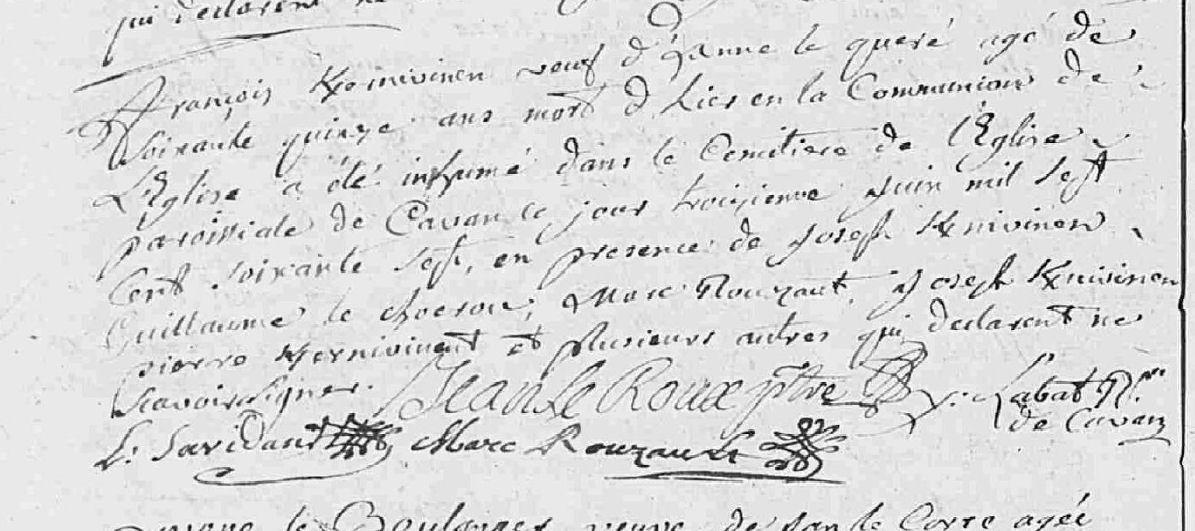 qui declarent ne
François Kernivinen veuf d'Anne le queré agé de
soixante quinze ans mort d'hier en la Communion de
L'Eglise a été inhumé dans le Cemitiere de l'Eglise
paroissiale de Cavan ce jour troizieme juin mil sept
Cent soixante sept, en presence de Joseph Knivinen
Guillaume le , Marc Rouzaut, Joseph Knivinen
pierre Kernivinent et plusieurs autres qui declarent ne
scavoir signer. Jean Le Roux ptre Y: Labat Rr.
de Cavan
L: Savidant Marc Rouzault
le Boulanger veuve de jan le Corre agée